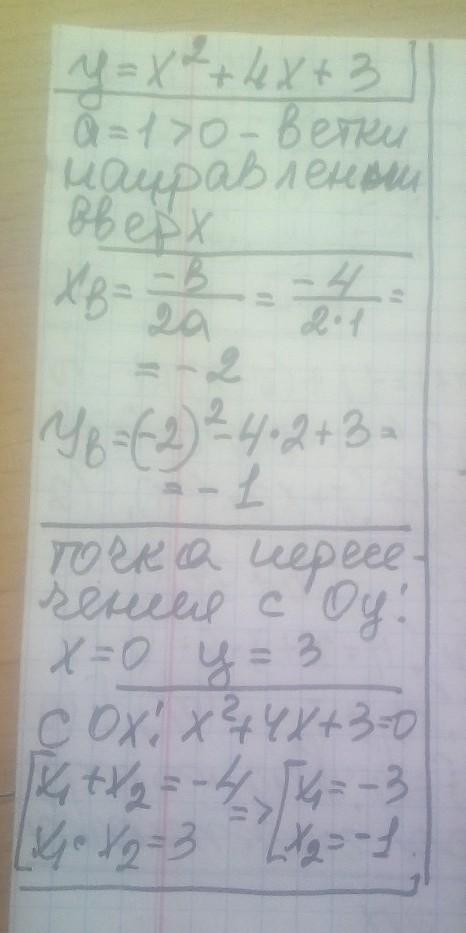 y = x² + 4x + 3
a = 1 > 0 - ветки
направленны
вверх
xв = -в/2a = -4/2·1 =
= -2
yв = (-2)² - 4·2 + 3 =
= -1
точка пересе-
чения с Oy:
x = 0 y = 3
с Ox: x² + 4x + 3 = 0
[x₁ + x₂ = -4 => [x₁ = -3
x₁ · x₂ = 3 x₂ = -1